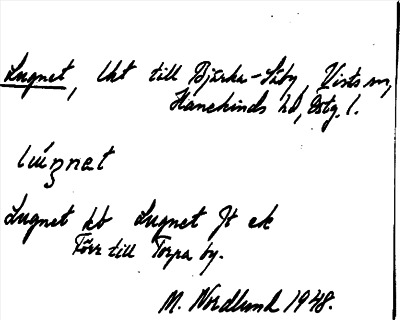 Lugnet, lht till Bjärka-Säby, Vists sn,
Hanekinds hd, Östg. l.
lúŋnet
Lugnet kb Lugnet Jt ek
Förr till Torpa by.
M. Nordlund 1948.